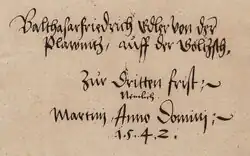 Balthasar friedrich Edler von der
Plawnitz, auff der Welchsch,
Zur Dritten frist;
Nemlich
Martini Anno Domini;
1.5.4.2.